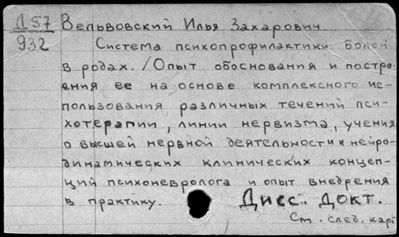 Д 57 Вельвовский Илья Захарович
932 Система психопрофилактики болей
в родах. /Опыт обоснования и постро-
ения ее на основе комплексного ис-
пользования различных течений пси-
хотерапии, линии нервизма, учения
о высшей нервной деятельности и нейро-
динамических клинических концеп-
ций психоневролога и опыт внедрения
в практику. Дисс. Докт.
См. след. карт